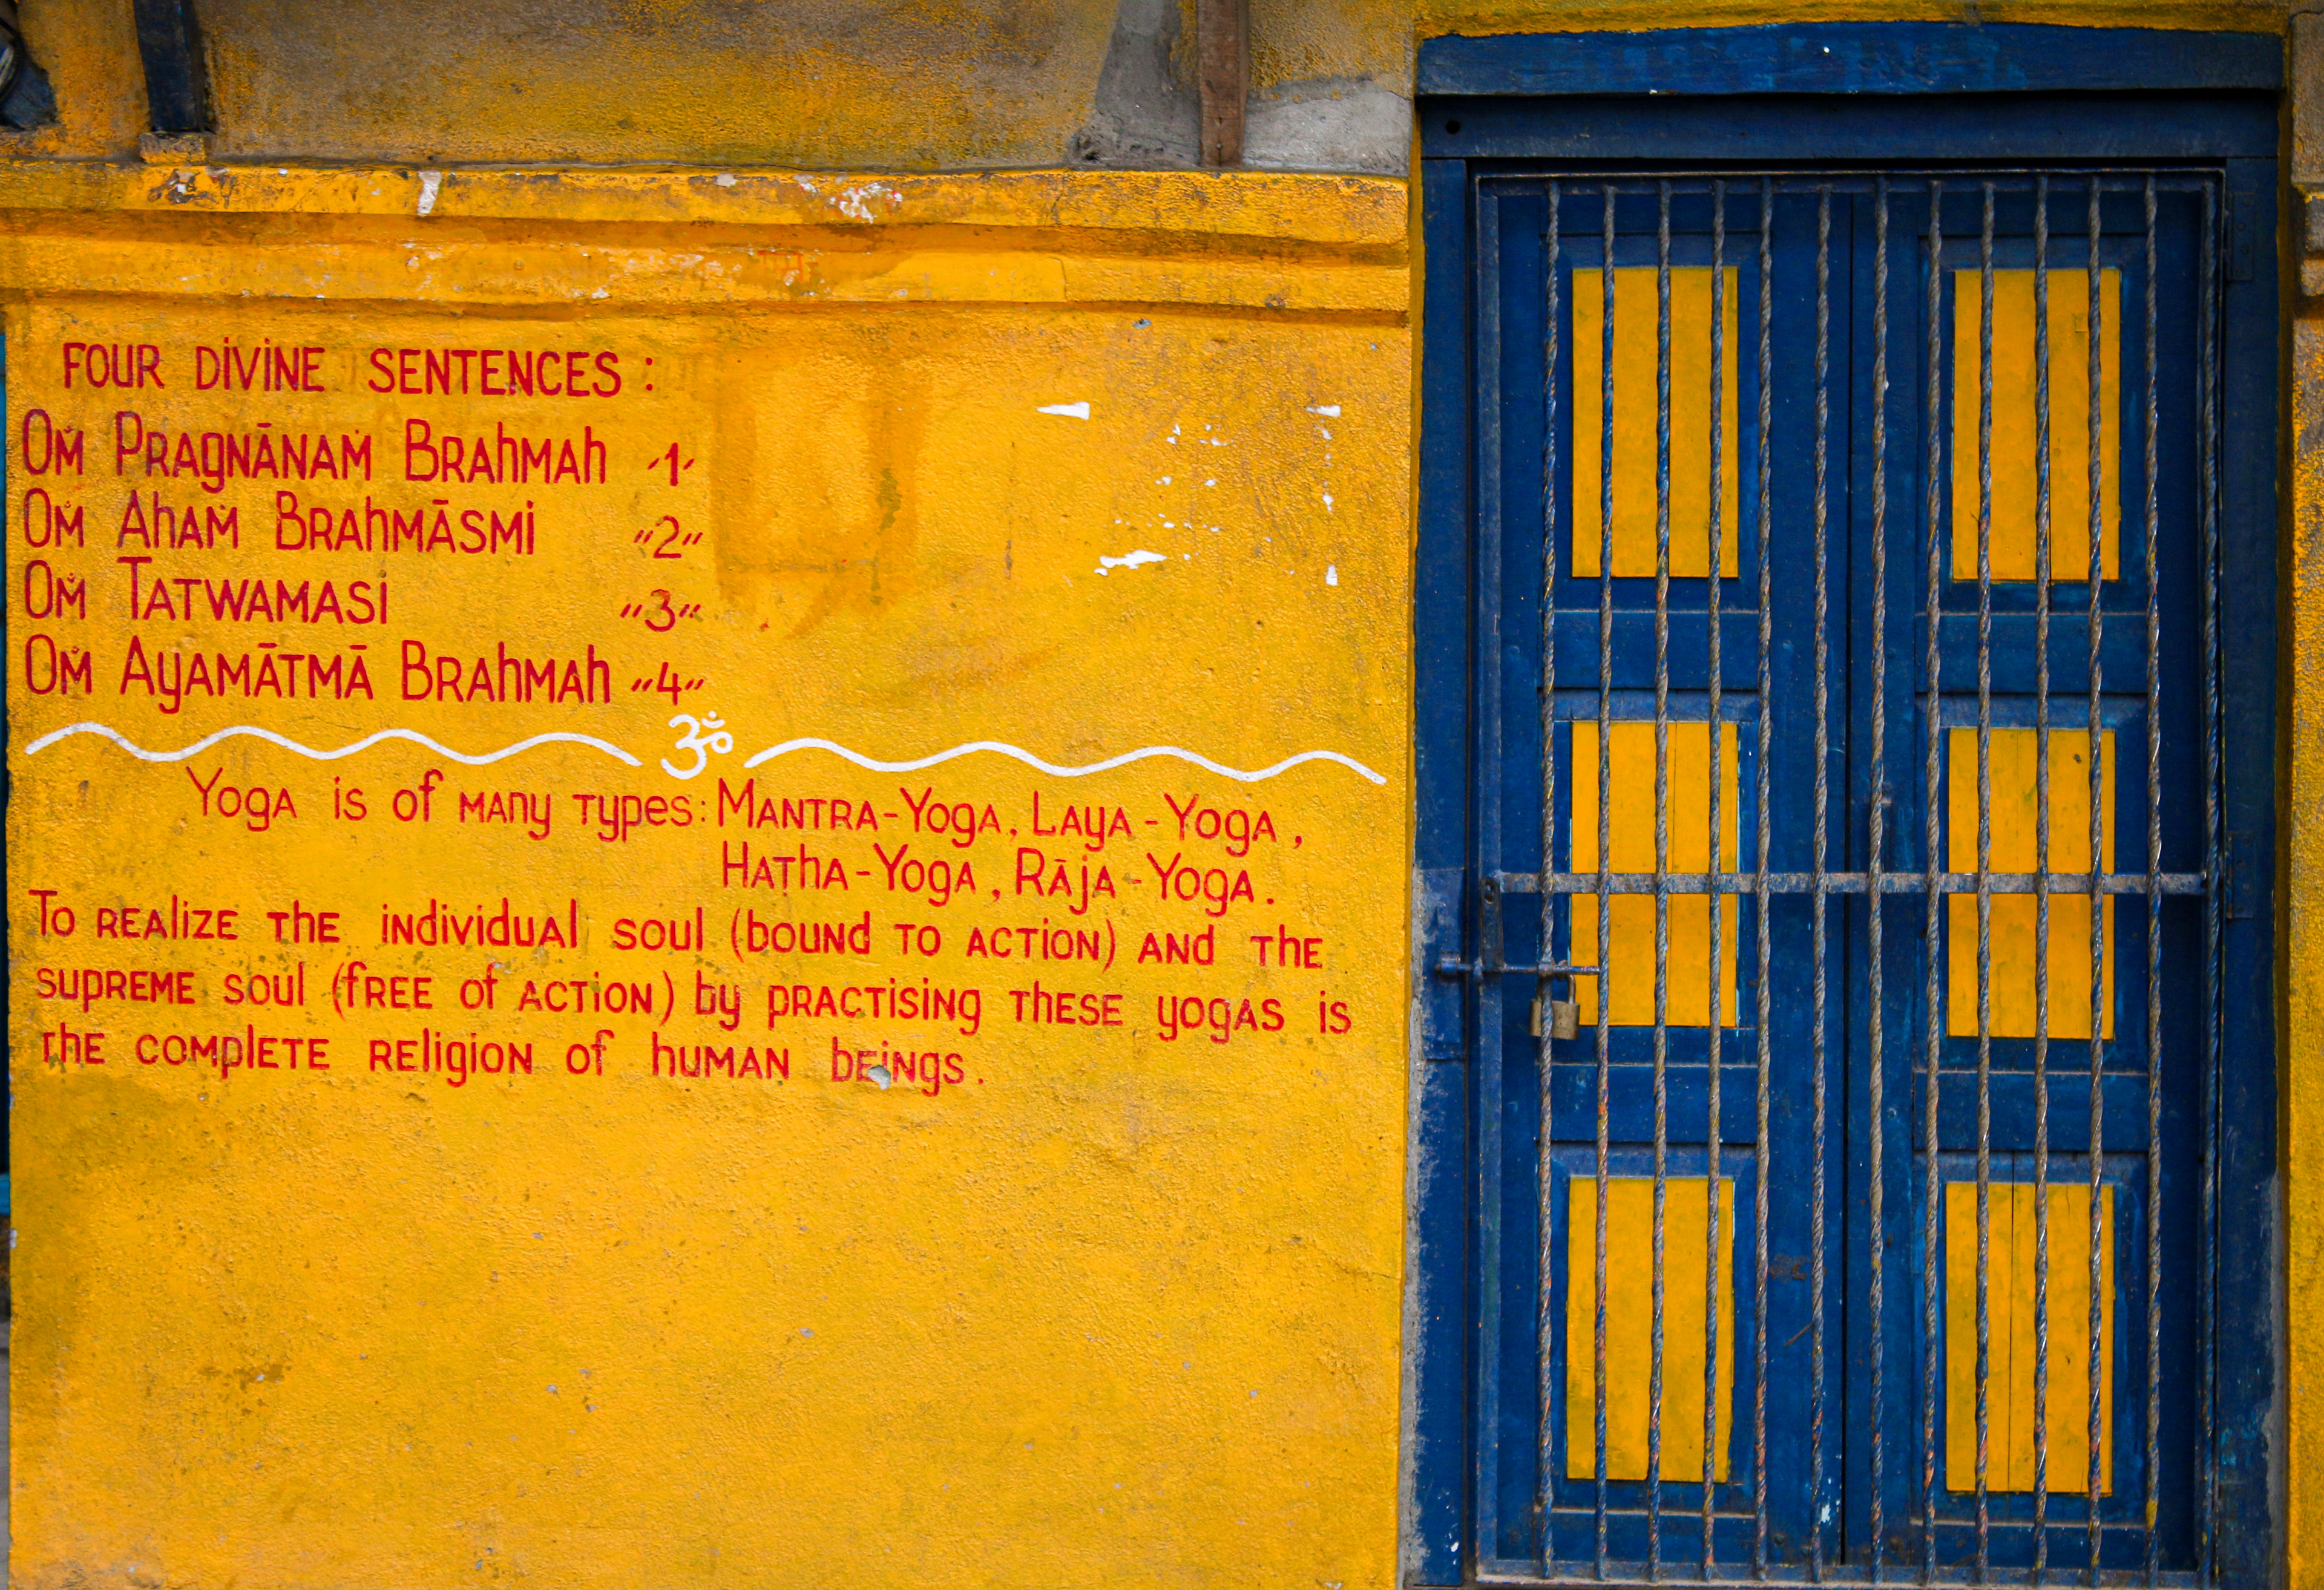 FOUR DIVINE SENTENCES :
OṀ PRAGNĀNAṀ BRAHMAH "1"
OṀ AHAṀ BRAHMĀSMI "2"
OṀ TATWAMASI "3"
OṀ AYAMĀTMĀ BRAHMAH "4"
ॐ
YOGA is of MANY TYPES: MANTRA-YOGA, LAYA-YOGA,
HATHA-YOGA, RĀJA-YOGA.
TO REALIZE THE individUAl soul (bOUND TO ACTION) AND THE
SUPREME soul (fREE of ACTION) by PRACTISING THESE yOgAS is
THE COMPlETE RELIGION of hUMAN bEINGS.